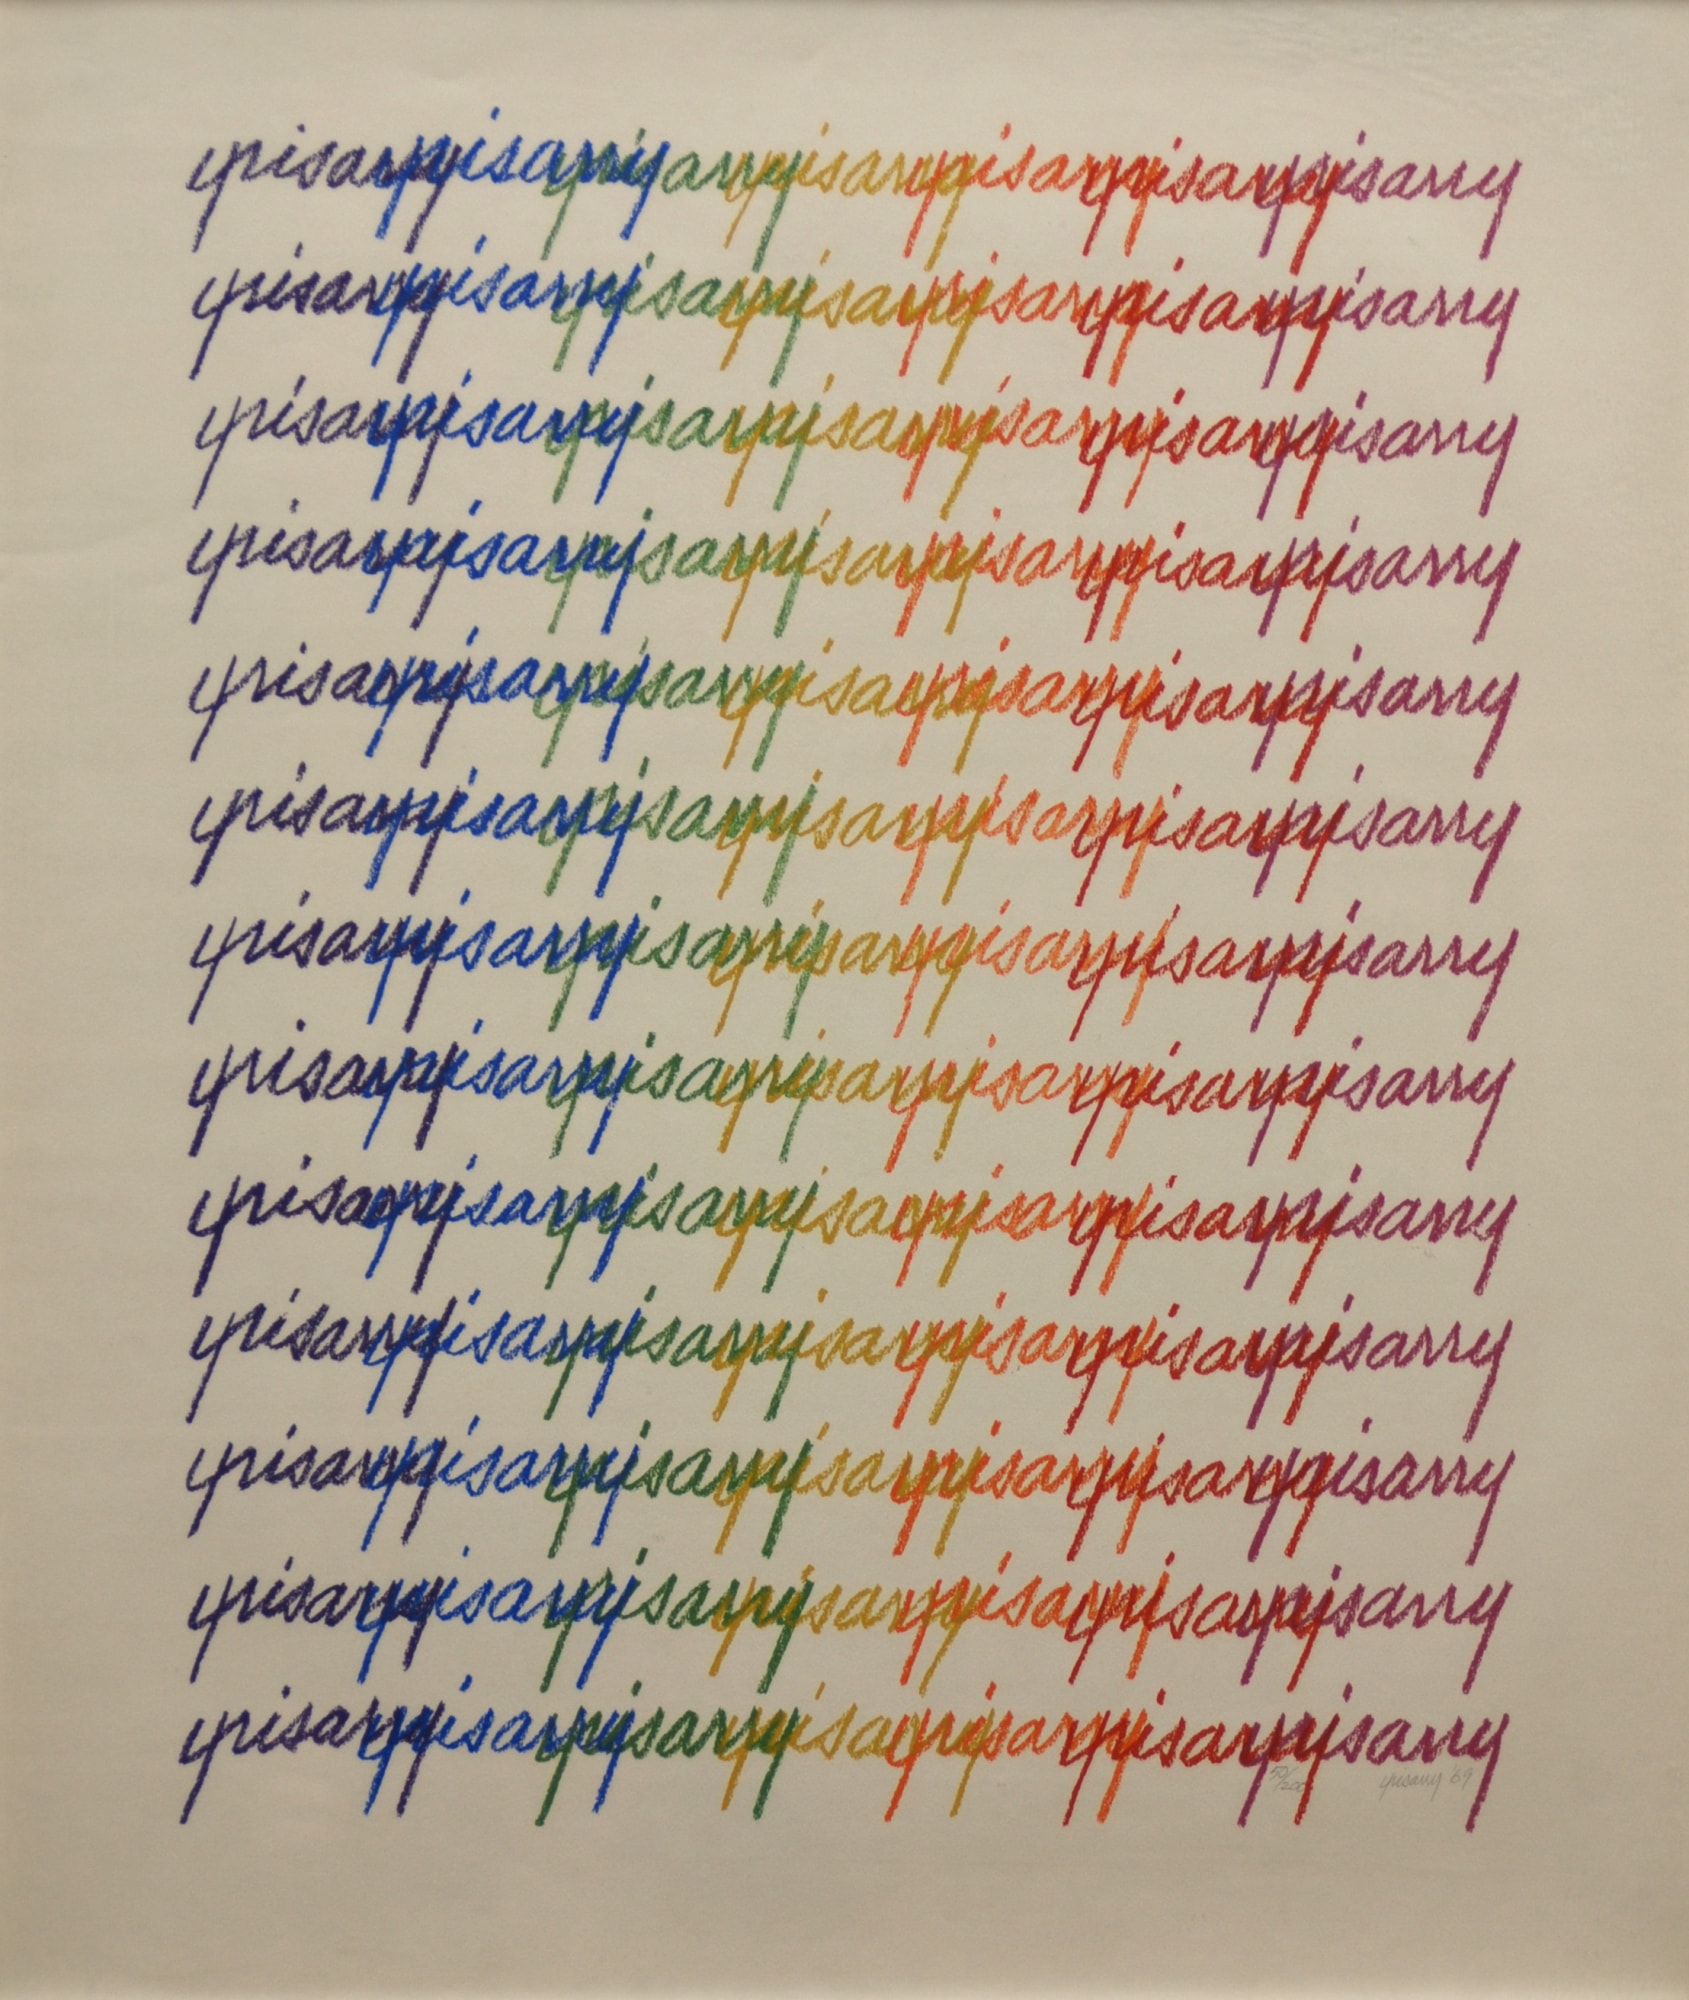 yrisarry yrisarry yrisarry yrisarry yrisarry yrisarry yrisarry
yrisarry yrisarry yrisarry yrisarry yrisarry yrisarry yrisarry
yrisarry yrisarry yrisarry yrisarry yrisarry yrisarry yrisarry
yrisarry yrisarry yrisarry yrisarry yrisarry yrisarry yrisarry
yrisarry yrisarry yrisarry yrisarry yrisarry yrisarry yrisarry
yrisarry yrisarry yrisarry yrisarry yrisarry yrisarry yrisarry
yrisarry yrisarry yrisarry yrisarry yrisarry yrisarry yrisarry
yrisarry yrisarry yrisarry yrisarry yrisarry yrisarry yrisarry
yrisarry yrisarry yrisarry yrisarry yrisarry yrisarry yrisarry
yrisarry yrisarry yrisarry yrisarry yrisarry yrisarry yrisarry
yrisarry yrisarry yrisarry yrisarry yrisarry yrisarry yrisarry
yrisarry yrisarry yrisarry yrisarry yrisarry yrisarry yrisarry
yrisarry yrisarry yrisarry yrisarry yrisarry yrisarry yrisarry
50/200 yrisarry '69